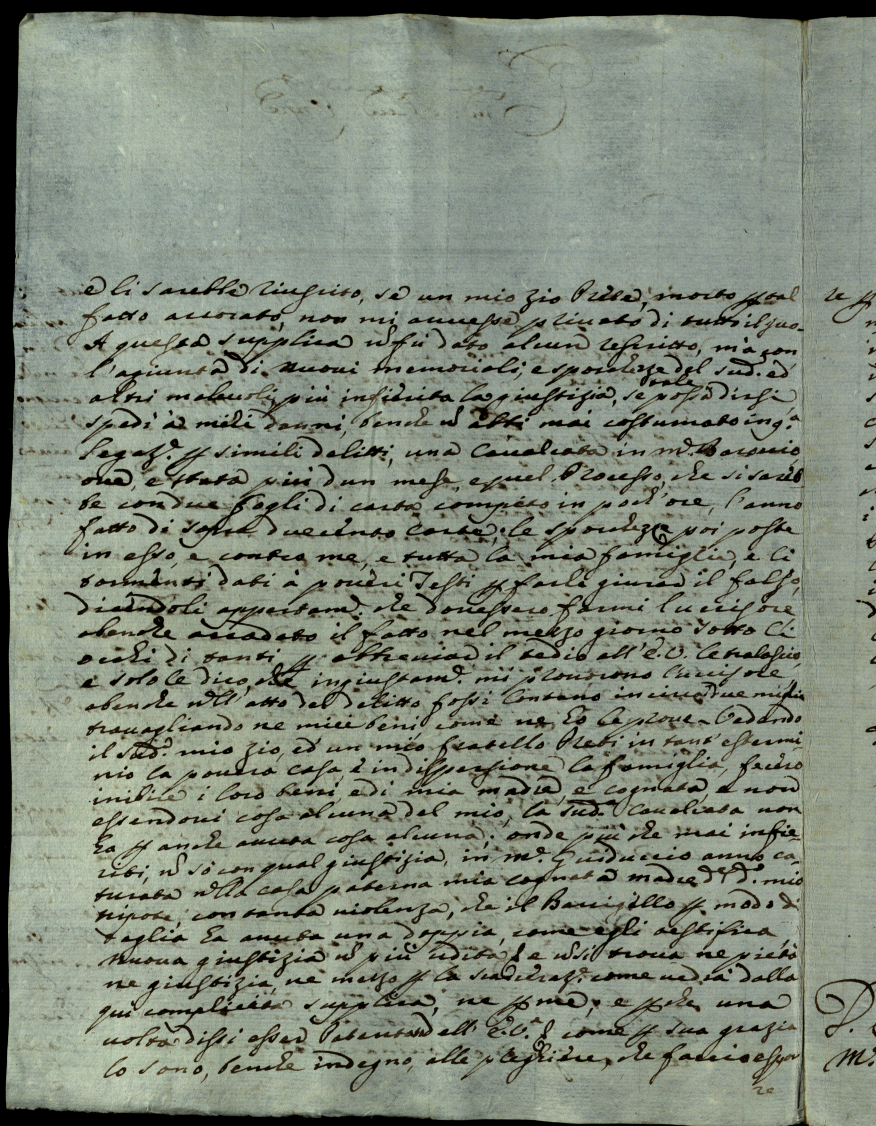 e li sarebbe riuscito, se un mio zio Prete, morto p tal
fatto accorato, non mi avesse privato di tutto il suo.
A questa supplica nfù dato alcun rescritto, mà con
l'agiunta di nuovi memoriali, e sporchezze del sud.º ed
altri malevoli, più infierita la giustizia, se tale possa dirsi,
spedì à miei danni, benche n abbi mai costumato in q.ª
Legaz.e p simili delitti, una Cavalcata in m.e Baronio
ove, e stata più d'un mese, e quel Processo, che si sareb
be con due fogli di carta compito in poch'ore, l'anno
fatto di sopra duecento carte; le sporchezze poi poste
in esso, e contro me, e tutta la mia famiglia, e li
tormenti dati à poveri Testi p farli giurar il falso,
dicendoli appertam.e che dovessero farmi l'uccisore
abenche accaduto il fatto nel mezzo giorno sotto li
occhi di tanti, p abbreviar il tedio all'E.V. le tralascio,
e solo le dico, che ingiustam.e mi provorono l'uccisore
abenche nell'atto del delitto fossi lontano in circa due miglia
travagliando ne miei beni, come ne hò le prove. Vedendo
il sud.º mio zio, ed un mio fratello Preti in tant'estermi
nio la povera casa, è in dispersione la famiglia, fecero
inibire i loro beni, e di mia madre, e cognata, e non
essendovi cosa alcuna del mio, la sud.ª Cavalcata non
ha p anche avuta cosa alcuna; onde più che mai infie-
riti, n sò con qual giustizia, in m.e Guiduccio anno ca-
turata nella casa paterna mia cognata madre del d.º mio
nipote, con tanta violenza, che il Barigello p modo di
taglia ha avuta una doppia, come egli atestifica,
nuova giustizia n più udita! e n si trova ne pietà
ne giustizia, ne mezzo p la scarceraz.e come vedrà dalla
qui complicita supplica, ne p me; e p che una
volta dissi esser Patentato dell'E.V.ª come p sua grazia
lo sono, benche indegno, alle preghiere, che faccio espor
re
re p
P.
m.